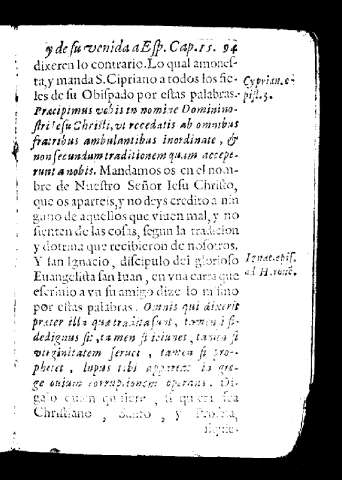 y de su venida a Esp. Cap. 15. 94
dixeren lo contrario. Lo qual amones-
ta, y manda S. Cipriano a todos los fie-
les de su Obispado por estas palabras.
Præcipimus vobis in nomine Domini no-
stri Iesu Christi, vt recedatis ab omnibus
fratribus ambulantibus inordinate, &
non secundum traditionem quam accepe-
runt a nobis. Mandamos os en el nom-
bre de Nuestro Señor Iesu Christo,
que os aparteis, y no deys credito a nin
guno de aquellos que viuen mal, y no
sienten de las cosas, segun la tradicion
y dotrina que recibieron de nosotros.
Y san Ignacio, discipulo del glorioso
Euangelista san Iuan, en vna carta que
escriuio a vn su amigo dize lo mismo
por estas palabras. Omnis qui dixerit
præter illa quæ tradita sunt, tametsi fi-
dedignus sit, tametsi ieiunet, tametsi
virginitatem seruet, tametsi pro-
phetet, lupus tibi appareat in gre-
ge ouium corruptionem operans. Di-
galo quien quisiere, si quier sea
Christiano, Santo, y Profeta,
siquie-
Cyprian. e-
pist. 5.
Ignat. epis.
ad H